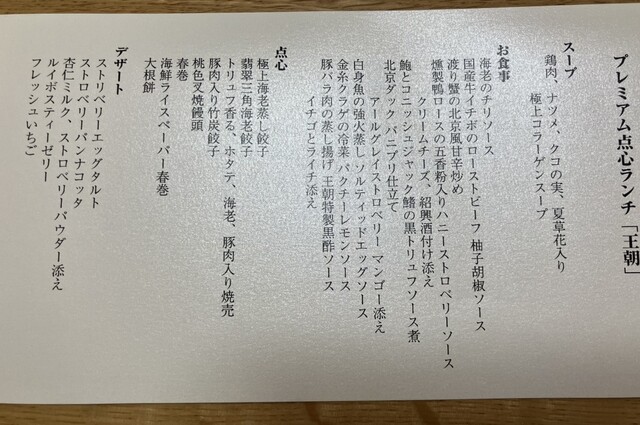 プレミアム点心ランチ「王朝」
スープ
鶏肉、ナツメ、クコの実、夏草花入り
極上コラーゲンスープ
お食事
海老のチリソース
国産牛イチボのローストビーフ 柚子胡椒ソース
渡り蟹の北京風甘辛炒め
燻製鴨ロースの五香粉入りハニーストロベリーソース
クリームチーズ、紹興酒付け添え
鮑とコニッシュジャック鱶の黒トリュフソース煮
北京ダック パニプリ仕立て
アールグレイストロベリー マンゴー添え
白身魚の強火蒸し ソルティッドエッグソース
金糸クラゲの冷菜 パクチーレモンソース
豚バラ肉の蒸し揚げ 王朝特製黒酢ソース
イチゴとライチ添え
点心
極上海老蒸し餃子
翡翠三角海老餃子
トリュフ香る、ホタテ、海老、豚肉入り焼売
豚肉入り竹炭餃子
桃色叉焼饅頭
春巻
海鮮ライスペーパー春巻
大根餅
デザート
ストリベリーエッグタルト
ストロベリーパンナコッタ
杏仁ミルク、ストロベリーパウダー添え
ルイボスティーゼリー
フレッシュいちご